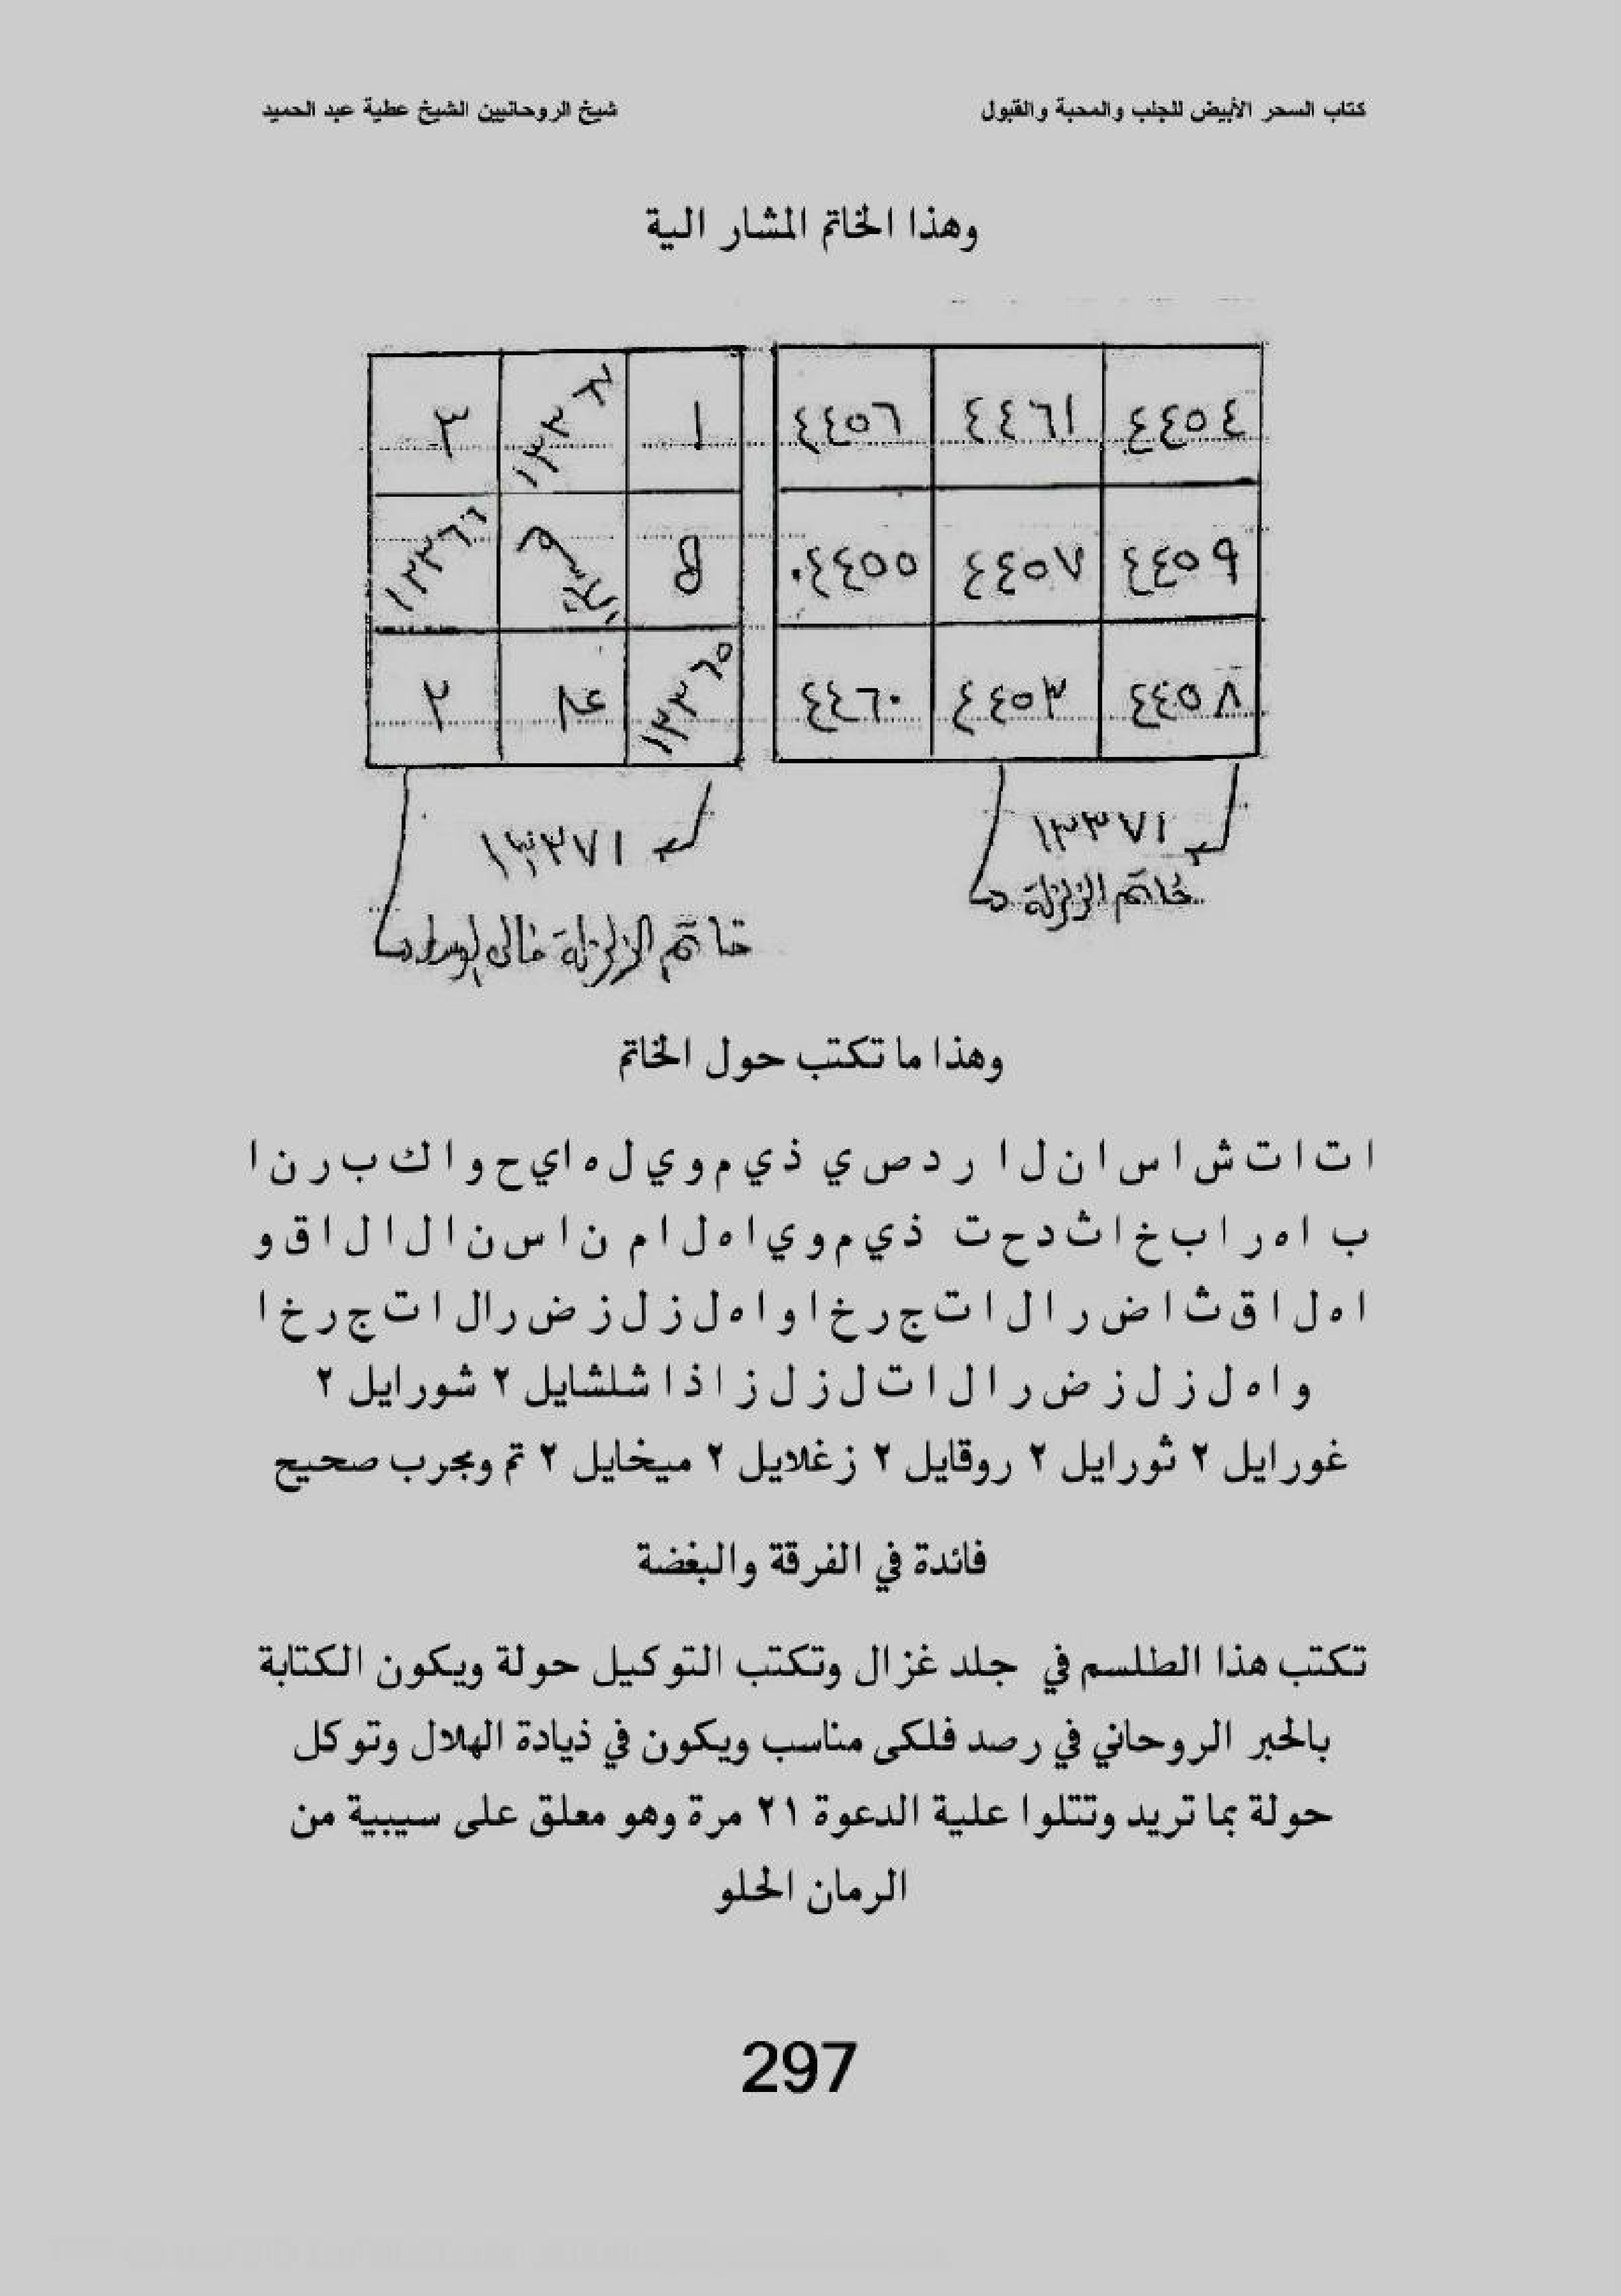 كتاب السحر الأبيض للجلب والمحبة والقبول
شيخ الروحانيين الشيخ عطية عبد الحميد
وهذا الخاتم المشار الية
٤٤٥٤ ٤٤٦١ ٤٤٥٦
٤٤٥٩ ٤٤٥٧ ٤٤٥٥
٤٤٥٨ ٤٤٥٣ ٤٤٦٠
١٣٣٧١
خاتم الزلزلة
١ ٣
١٣٣٦٦
١٣٣٦٥ ٢
١٣٣٧١
خاتم الزلزلة خالى الوسط
وهذا ما تكتب حول الخاتم
ا ت ا ت ش ا س ا ن ل ا ر د ص ي ذ ي م و ي ل ه ا ي ح و ا ك ب ر ن ا
ب ا ه ر ا ب خ ا ث د ح ت ذ ي م و ي ا ه ل ا م ن ا س ن ا ل ا ل ا ق و
ا ه ل ا ق ث ا ض ر ا ل ا ت ج ر خ ا و ا ه ل ز ل ز ض ر ا ل ا ت ج ر خ ا
و ا ه ل ز ل ز ض ر ا ل ا ت ل ز ل ز ا ذ ا شلشايل ٢ شورايل ٢
غورايل ٢ ثورايل ٢ روقايل ٢ زغلايل ٢ ميخايل ٢ تم ومجرب صحيح
فائدة في الفرقة والبغضة
تكتب هذا الطلسم في جلد غزال وتكتب التوكيل حولة ويكون الكتابة
بالحبر الروحاني في رصد فلكى مناسب ويكون في ذيادة الهلال وتوكل
حولة بما تريد وتتلوا علية الدعوة ٢١ مرة وهو معلق على سيبية من
الرمان الحلو
297